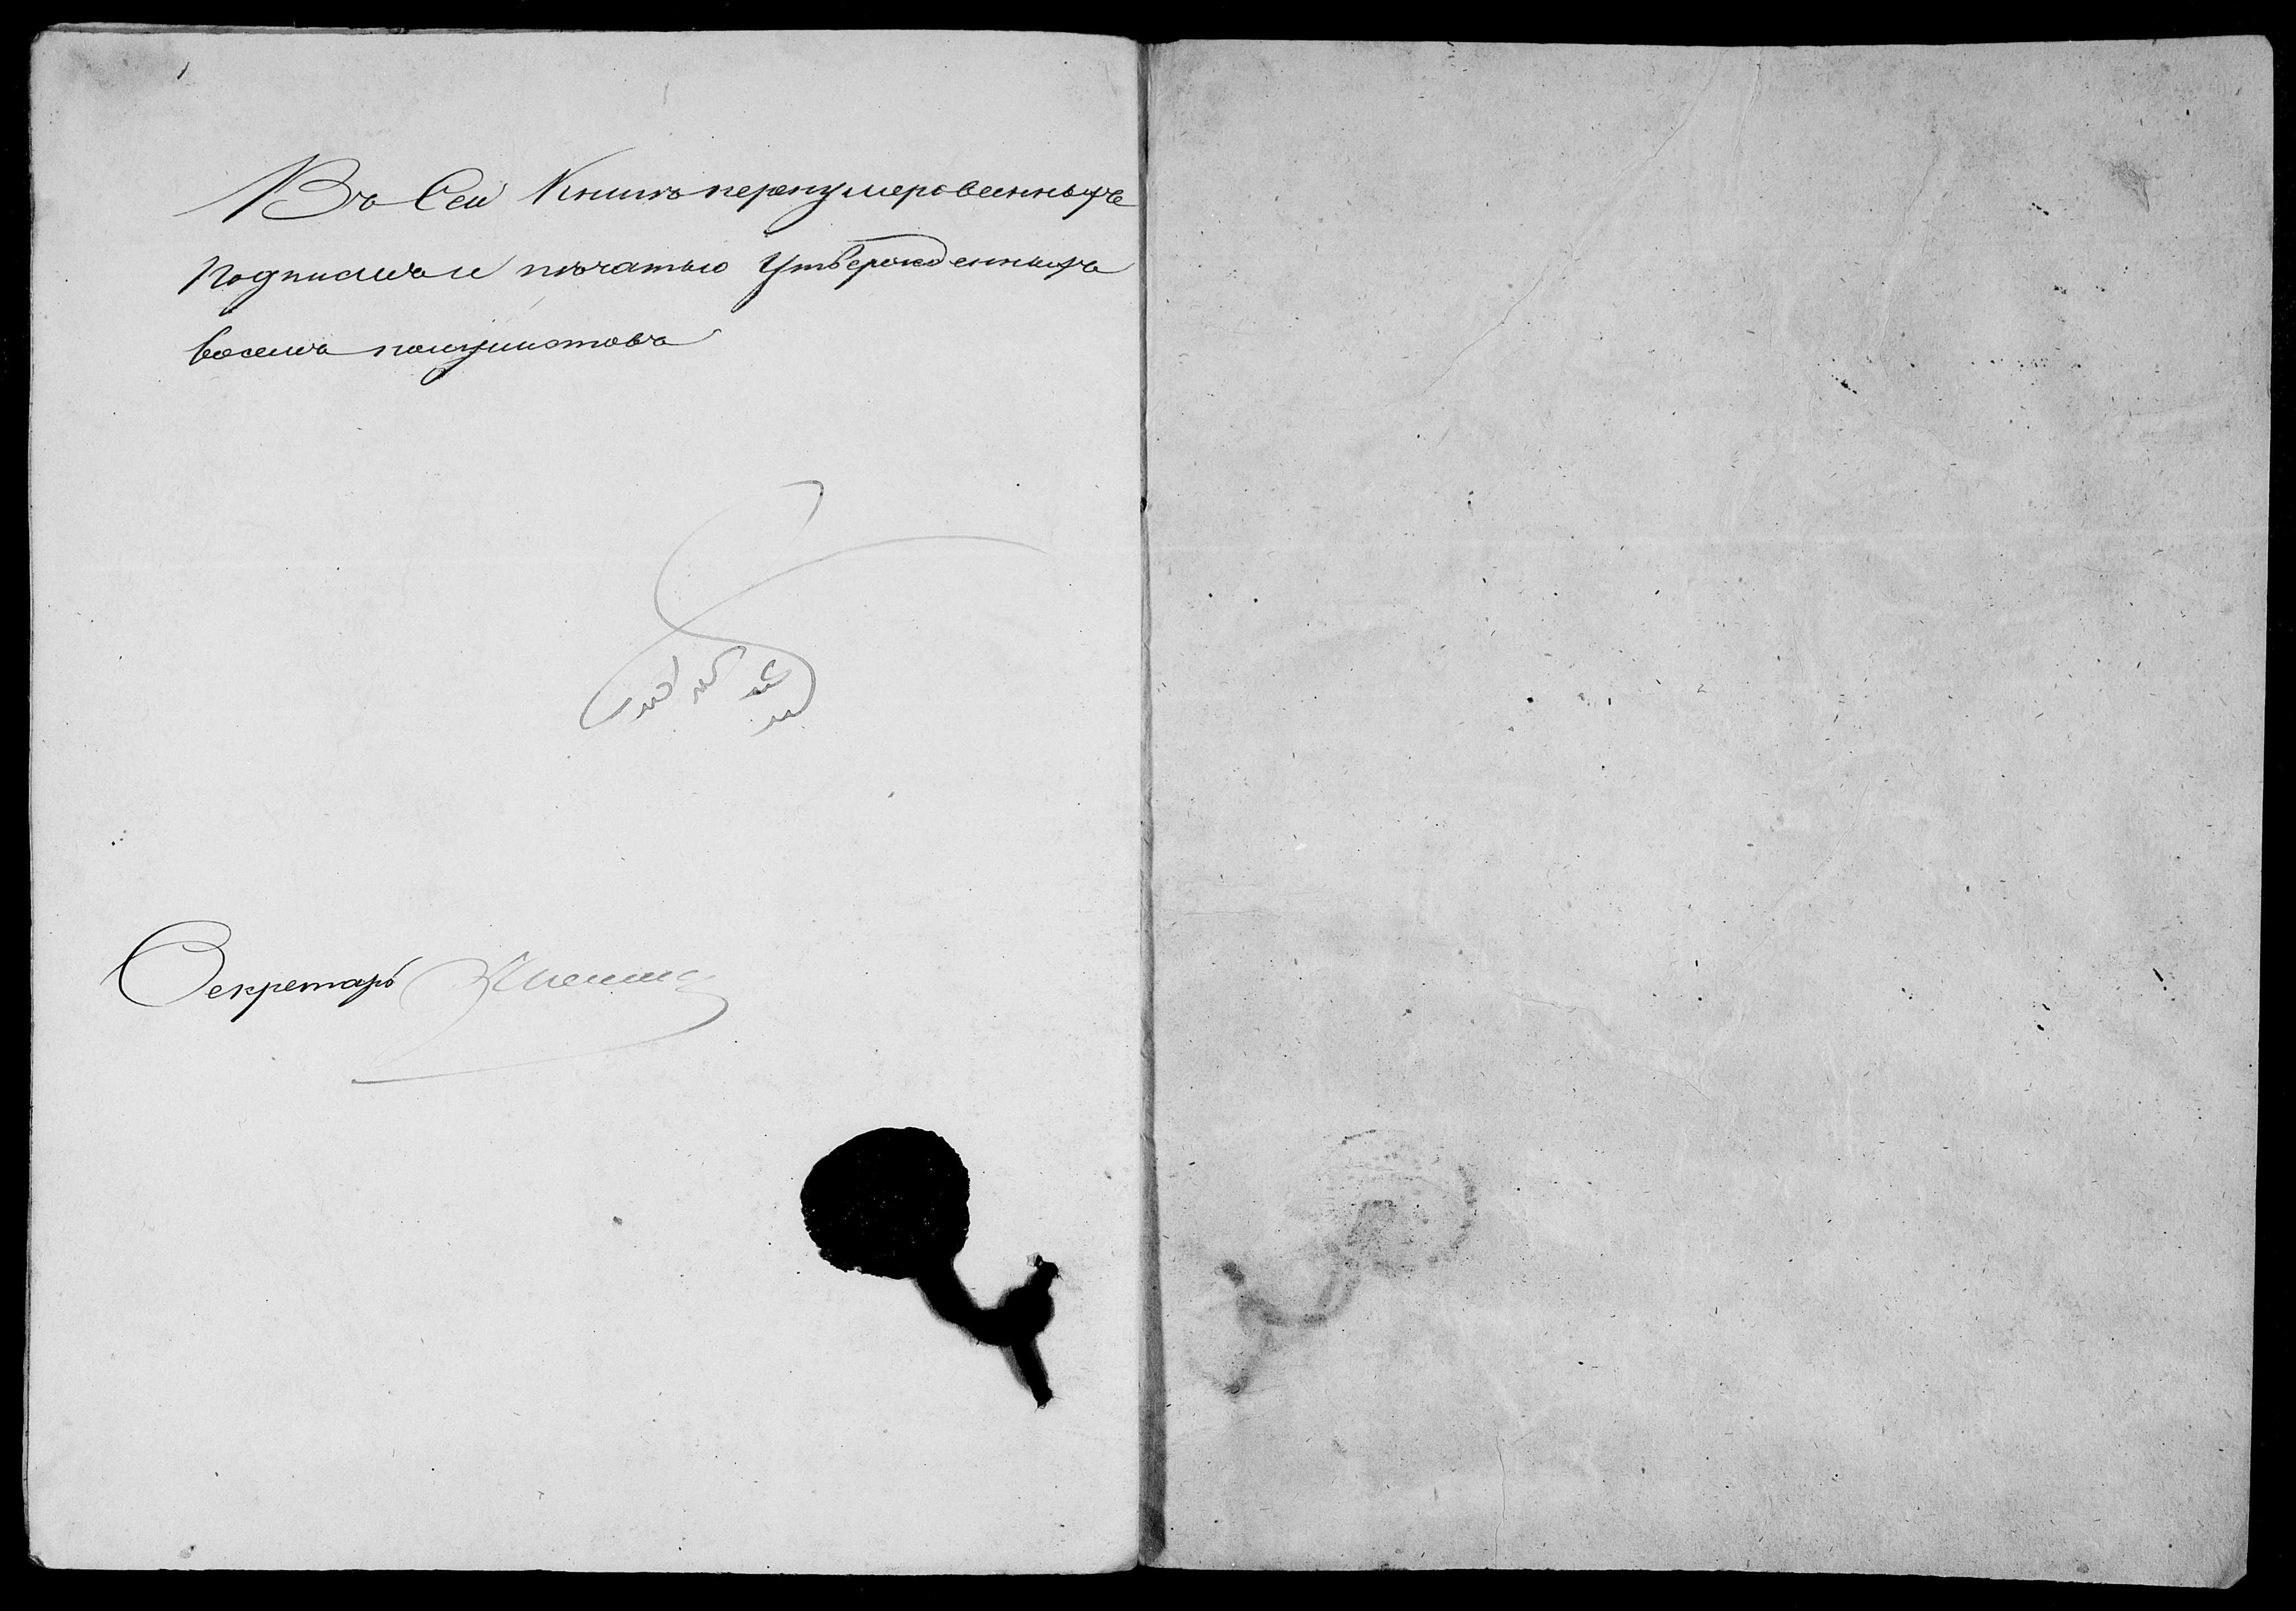 Въ Сей Книгѣ перенумерованныхъ
подписью и печатью утвержденныхъ
восемь полулистовъ
Секретарь